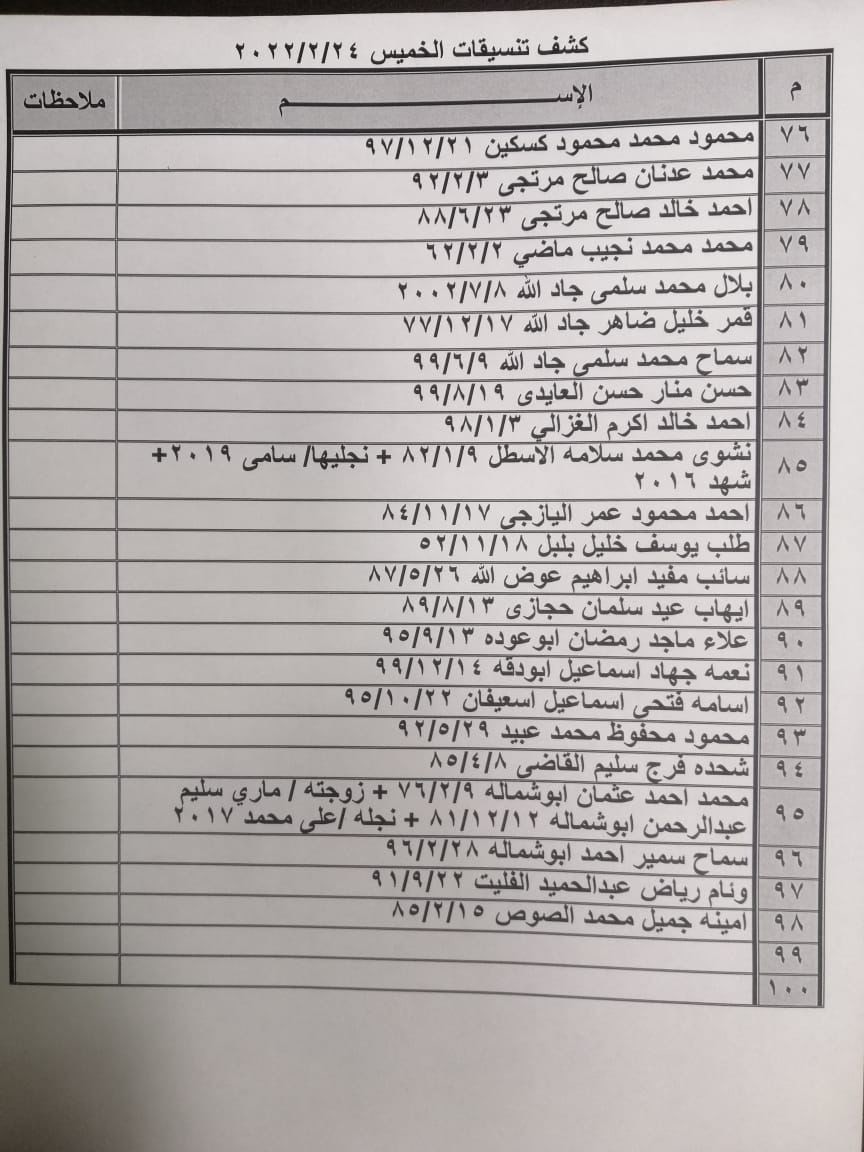 كشف تنسيقات الخميس ٢٠٢٢/٢/٢٤
م الإســـــــــــــــــــــم ملاحظات
٧٦ محمود محمد محمود كسكين ٩٧/١٢/٢١
٧٧ محمد عدنان صالح مرتجى ٩٢/٢/٣
٧٨ احمد خالد صالح مرتجى ٨٨/٦/٢٣
٧٩ محمد محمد نجيب ماضي ٦٢/٢/٢
٨٠ بلال محمد سلمى جاد الله ٢٠٠٢/٧/٨
٨١ قمر خليل ضاهر جاد الله ٧٧/١٢/١٧
٨٢ سماح محمد سلمى جاد الله ٩٩/٦/٩
٨٣ حسن منار حسن العايدى ٩٩/٨/١٩
٨٤ احمد خالد اكرم الغزالي ٩٨/١/٣
٨٥ نشوى محمد سلامه الاسطل ٨٢/١/٩ + نجليها/ سامى ٢٠١٩+
شهد ٢٠١٦
٨٦ احمد محمود عمر اليازجى ٨٤/١١/١٧
٨٧ طلب يوسف خليل بلبل ٥٢/١١/١٨
٨٨ سائب مفيد ابراهيم عوض الله ٨٧/٥/٢٦
٨٩ ايهاب عيد سلمان حجازى ٨٩/٨/١٣
٩٠ علاء ماجد رمضان ابوعوده ٩٥/٩/١٣
٩١ نعمه جهاد اسماعيل ابودقه ٩٩/١٢/١٤
٩٢ اسامه فتحى اسماعيل اسعيفان ٩٥/١٠/٢٢
٩٣ محمود محفوظ محمد عبيد ٩٢/٥/٢٩
٩٤ شحده فرج سليم القاضى ٨٥/٤/٨
٩٥ محمد احمد عثمان ابوشماله ٧٦/٢/٩ + زوجته / ماري سليم
عبدالرحمن ابوشماله ٨١/١٢/١٢ + نجله /على محمد ٢٠١٧
٩٦ سماح سمير احمد ابوشماله ٩٦/٢/٢٨
٩٧ وئام رياض عبدالحميد الفليت ٩١/٩/٢٢
٩٨ امينه جميل محمد الصوص ٨٥/٢/١٥
٩٩
١٠٠